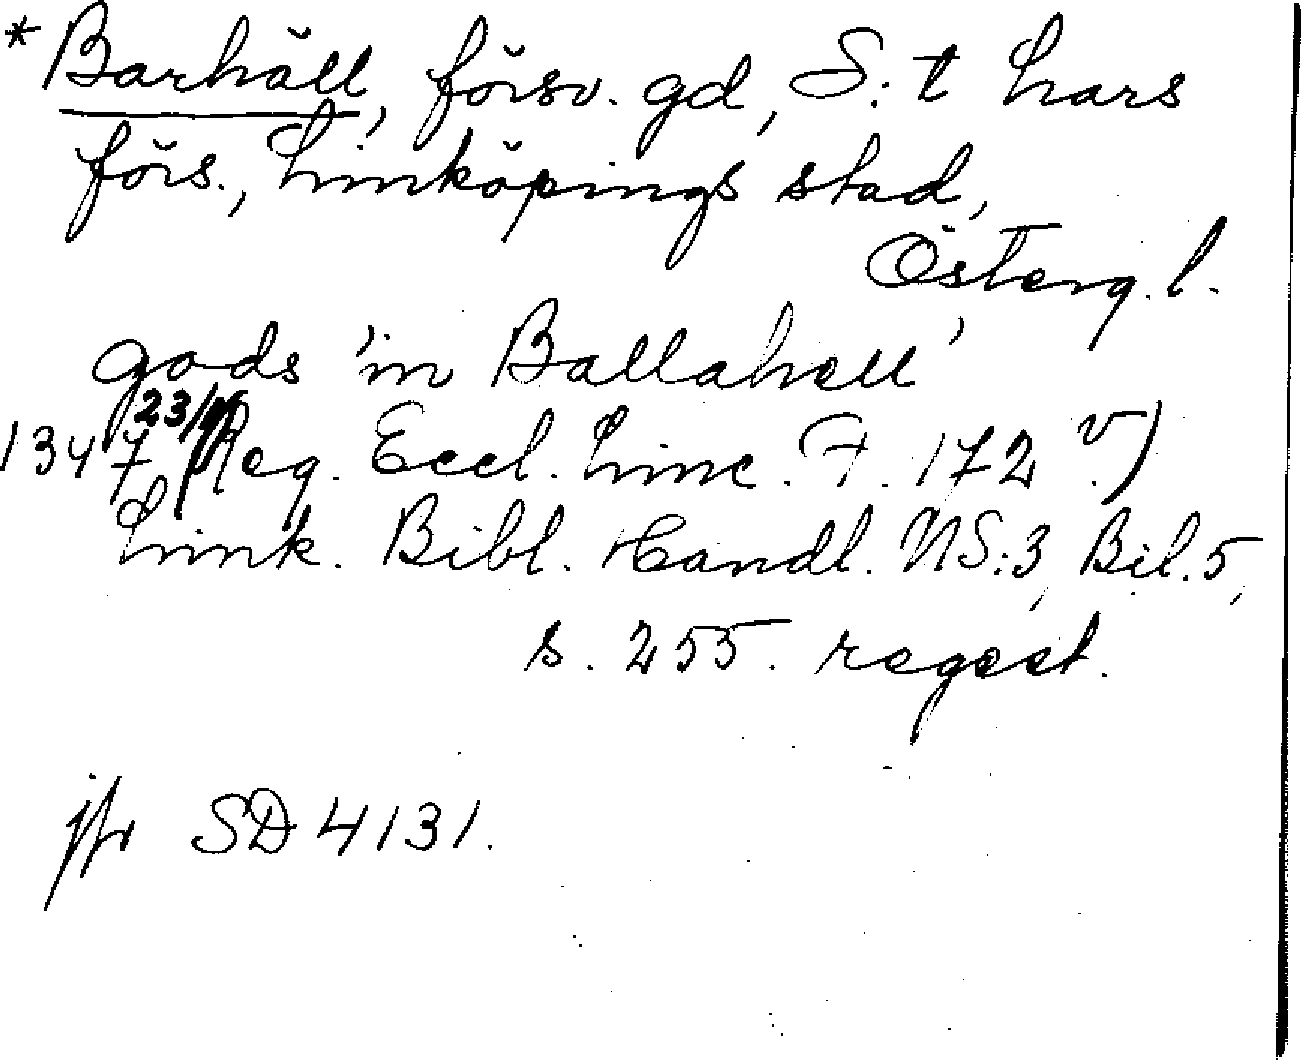 *Barhäll, försv. gd, S:t Lars
förs., Linköpings stad,
Österg. l.
gods 'in Ballahell'
1347 23/ (Reg. Eccl. Linc. F. 172 v.)
Link. Bibl. Handl. NS:3, Bil. 5,
s. 255. regest.
jfr SD 4131.